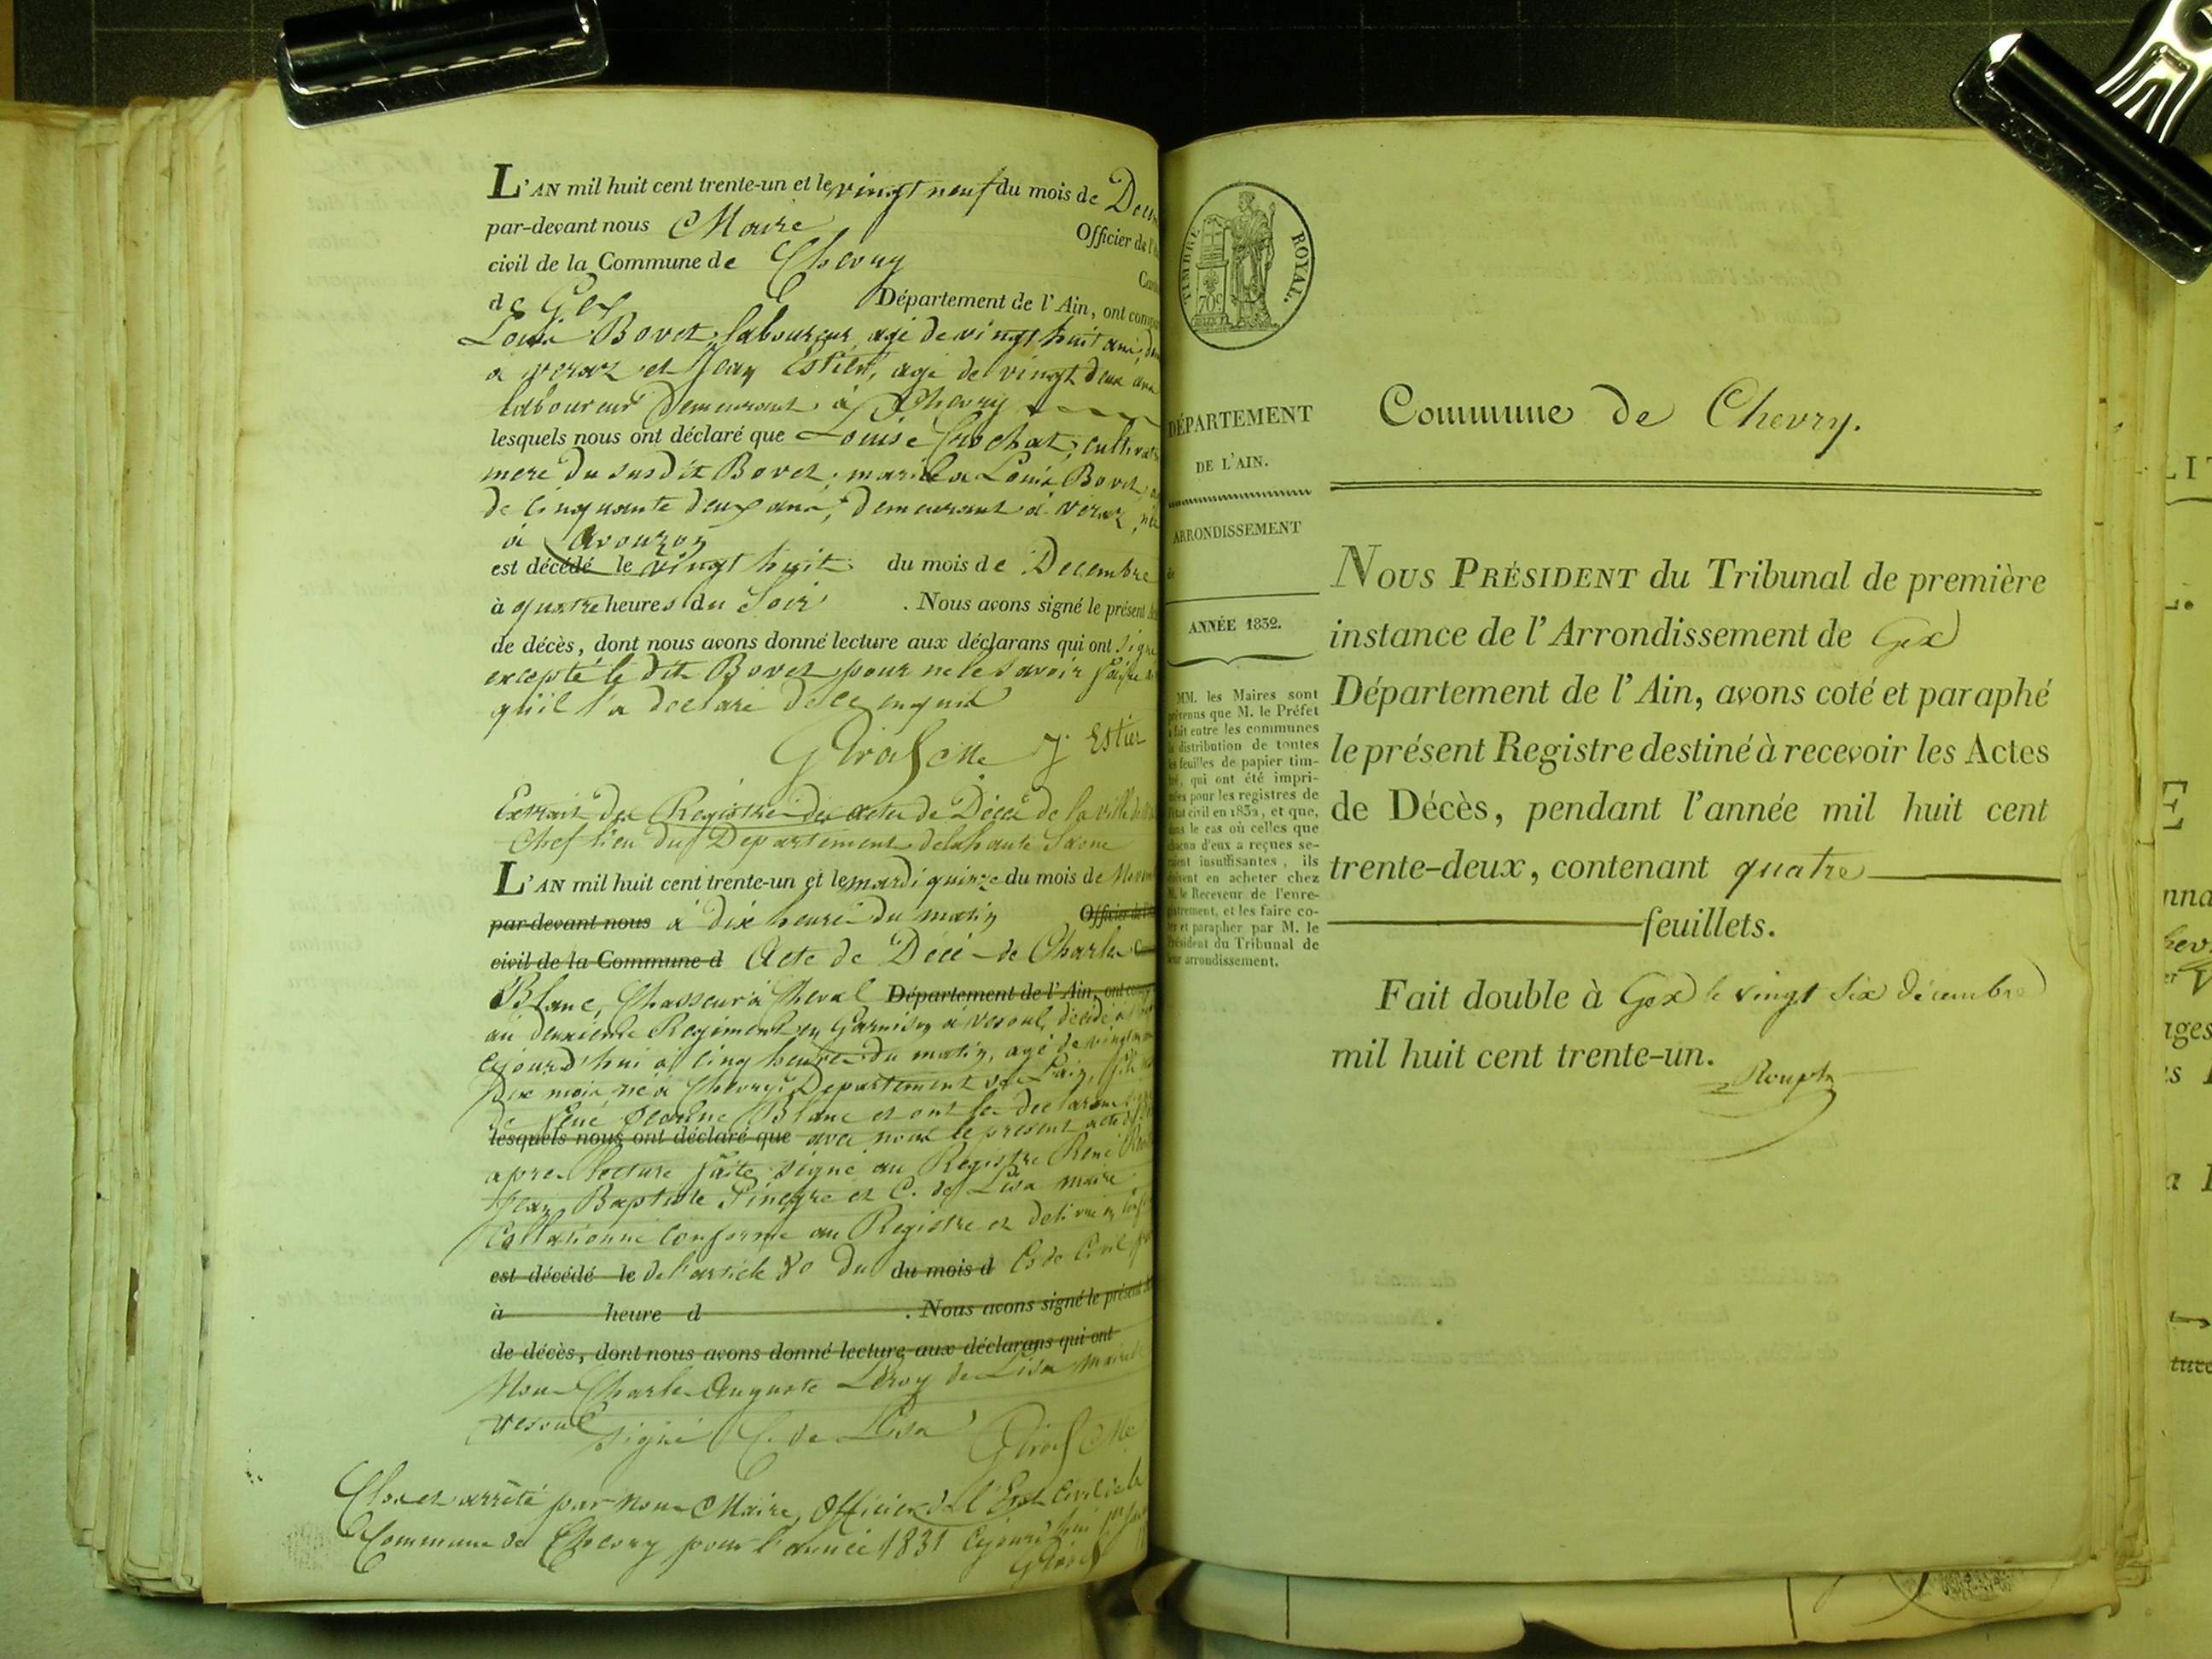 L'AN mil huit cent trente-un et le vingt neuf du mois de
par-devant nous Maire Officier de
civil de la Commune de Chevry
de Gex Département de l'Ain, ont
Louis Bovet, laboureur, agé de vingt huit ans,
a veraz et Jean Estier, agé de vingt deux ans
laboureur demeurant à Chevry
lesquels nous ont déclaré que Louise Crochat,
mere du susdit Bovet, mariée a Louis Bovet,
de cinquante deux ans, demeurant à veraz, née
à Avouzon
est décédé le vingt huit du mois de Decembre
à quatre heures du Soir . Nous avons signé le présent
de décès, dont nous avons donné lecture aux déclarans qui ont signé
excepté le dit Bovet pour ne le savoir faire
qu'il l'a déclaré de ce enquis
J. Estier
Extrait du Registre des actes de Décès de la ville de
Chef lieu du Département de la haute Saone
L'AN mil huit cent trente-un et le mardi quinze du mois de
par-devant nous à dix heures du matin Officier de
civil de la Commune d Acte de Décès de Charles
Blanc, Chasseur à Cheval Département de l'Ain, ont
au deuxieme Regiment en Garnison à Vesoul, décédé
cejourd'hui à cinq heures du matin, agé de
dix mois, né à Chevry Département de l'ain, fils
de Blanc et ont les declarans
lesquels nous ont déclaré que avec nous le present acte
apres lecture faite, signé au Registre René
Jean Baptiste et C. de Lisa maire
Collationné conforme au Registre et delivré
est décédé le de l'article 80 du du mois d Code Civil
à heure d . Nous avons signé le présent
de décès, dont nous avons donné lecture aux déclarans qui ont
Nous Charles Auguste Leroy de Lisa maire
vesoul signé C. de Lisa
Clos et arrêté par nous Maire, Officier de l'Etat Civil de la
Commune de Chevry pour l'année 1831 Cejourd'hui
TIMBRE ROYAL.
70c
DÉPARTEMENT
DE L'AIN.
ARRONDISSEMENT
de
ANNÉE 1832.
MM. les Maires sont
prévenus que M. le Préfet
a fait entre les communes
la distribution de toutes
les feuilles de papier tim-
bré, qui ont été impri-
mées pour les registres de
l'état civil en 1832, et que,
dans le cas où celles que
chacun d'eux a reçues se-
raient insuffisantes, ils
doivent en acheter chez
M. le Receveur de l'enre-
gistrement, et les faire co-
ter et parapher par M. le
Président du Tribunal de
leur arrondissement.
Commune de Chevry.
NOUS PRÉSIDENT du Tribunal de première
instance de l'Arrondissement de Gex
Département de l'Ain, avons coté et paraphé
le présent Registre destiné à recevoir les Actes
de Décès, pendant l'année mil huit cent
trente-deux, contenant quatre
feuillets.
Fait double à Gex le vingt six décembre
mil huit cent trente-un.